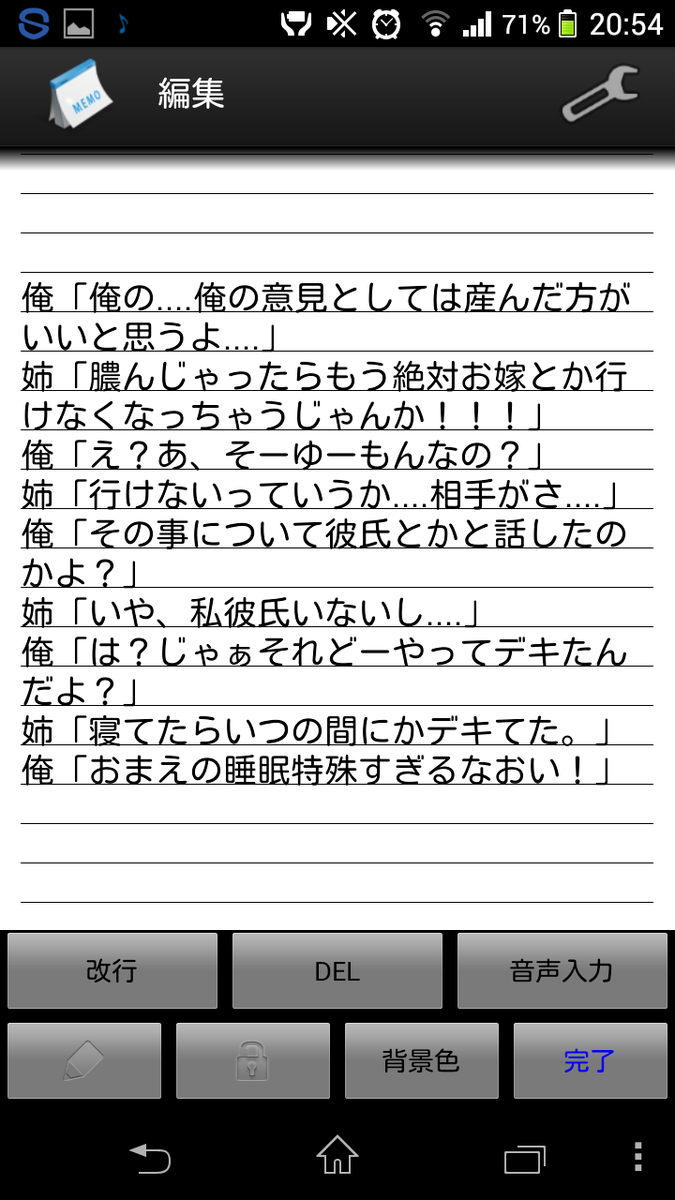 71% 20:54
MEMO
編集
俺「俺の....俺の意見としては産んだ方が
いいと思うよ....」
姉「膿んじゃったらもう絶対お嫁とか行
けなくなっちゃうじゃんか！！！」
俺「え？あ、そーゆーもんなの？」
姉「行けないっていうか....相手がさ....」
俺「その事について彼氏とかと話したの
かよ？」
姉「いや、私彼氏いないし....」
俺「は？じゃぁそれどーやってデキたん
だよ？」
姉「寝てたらいつの間にかデキてた。」
俺「おまえの睡眠特殊すぎるなおい！」
改行 DEL 音声入力
背景色 完了